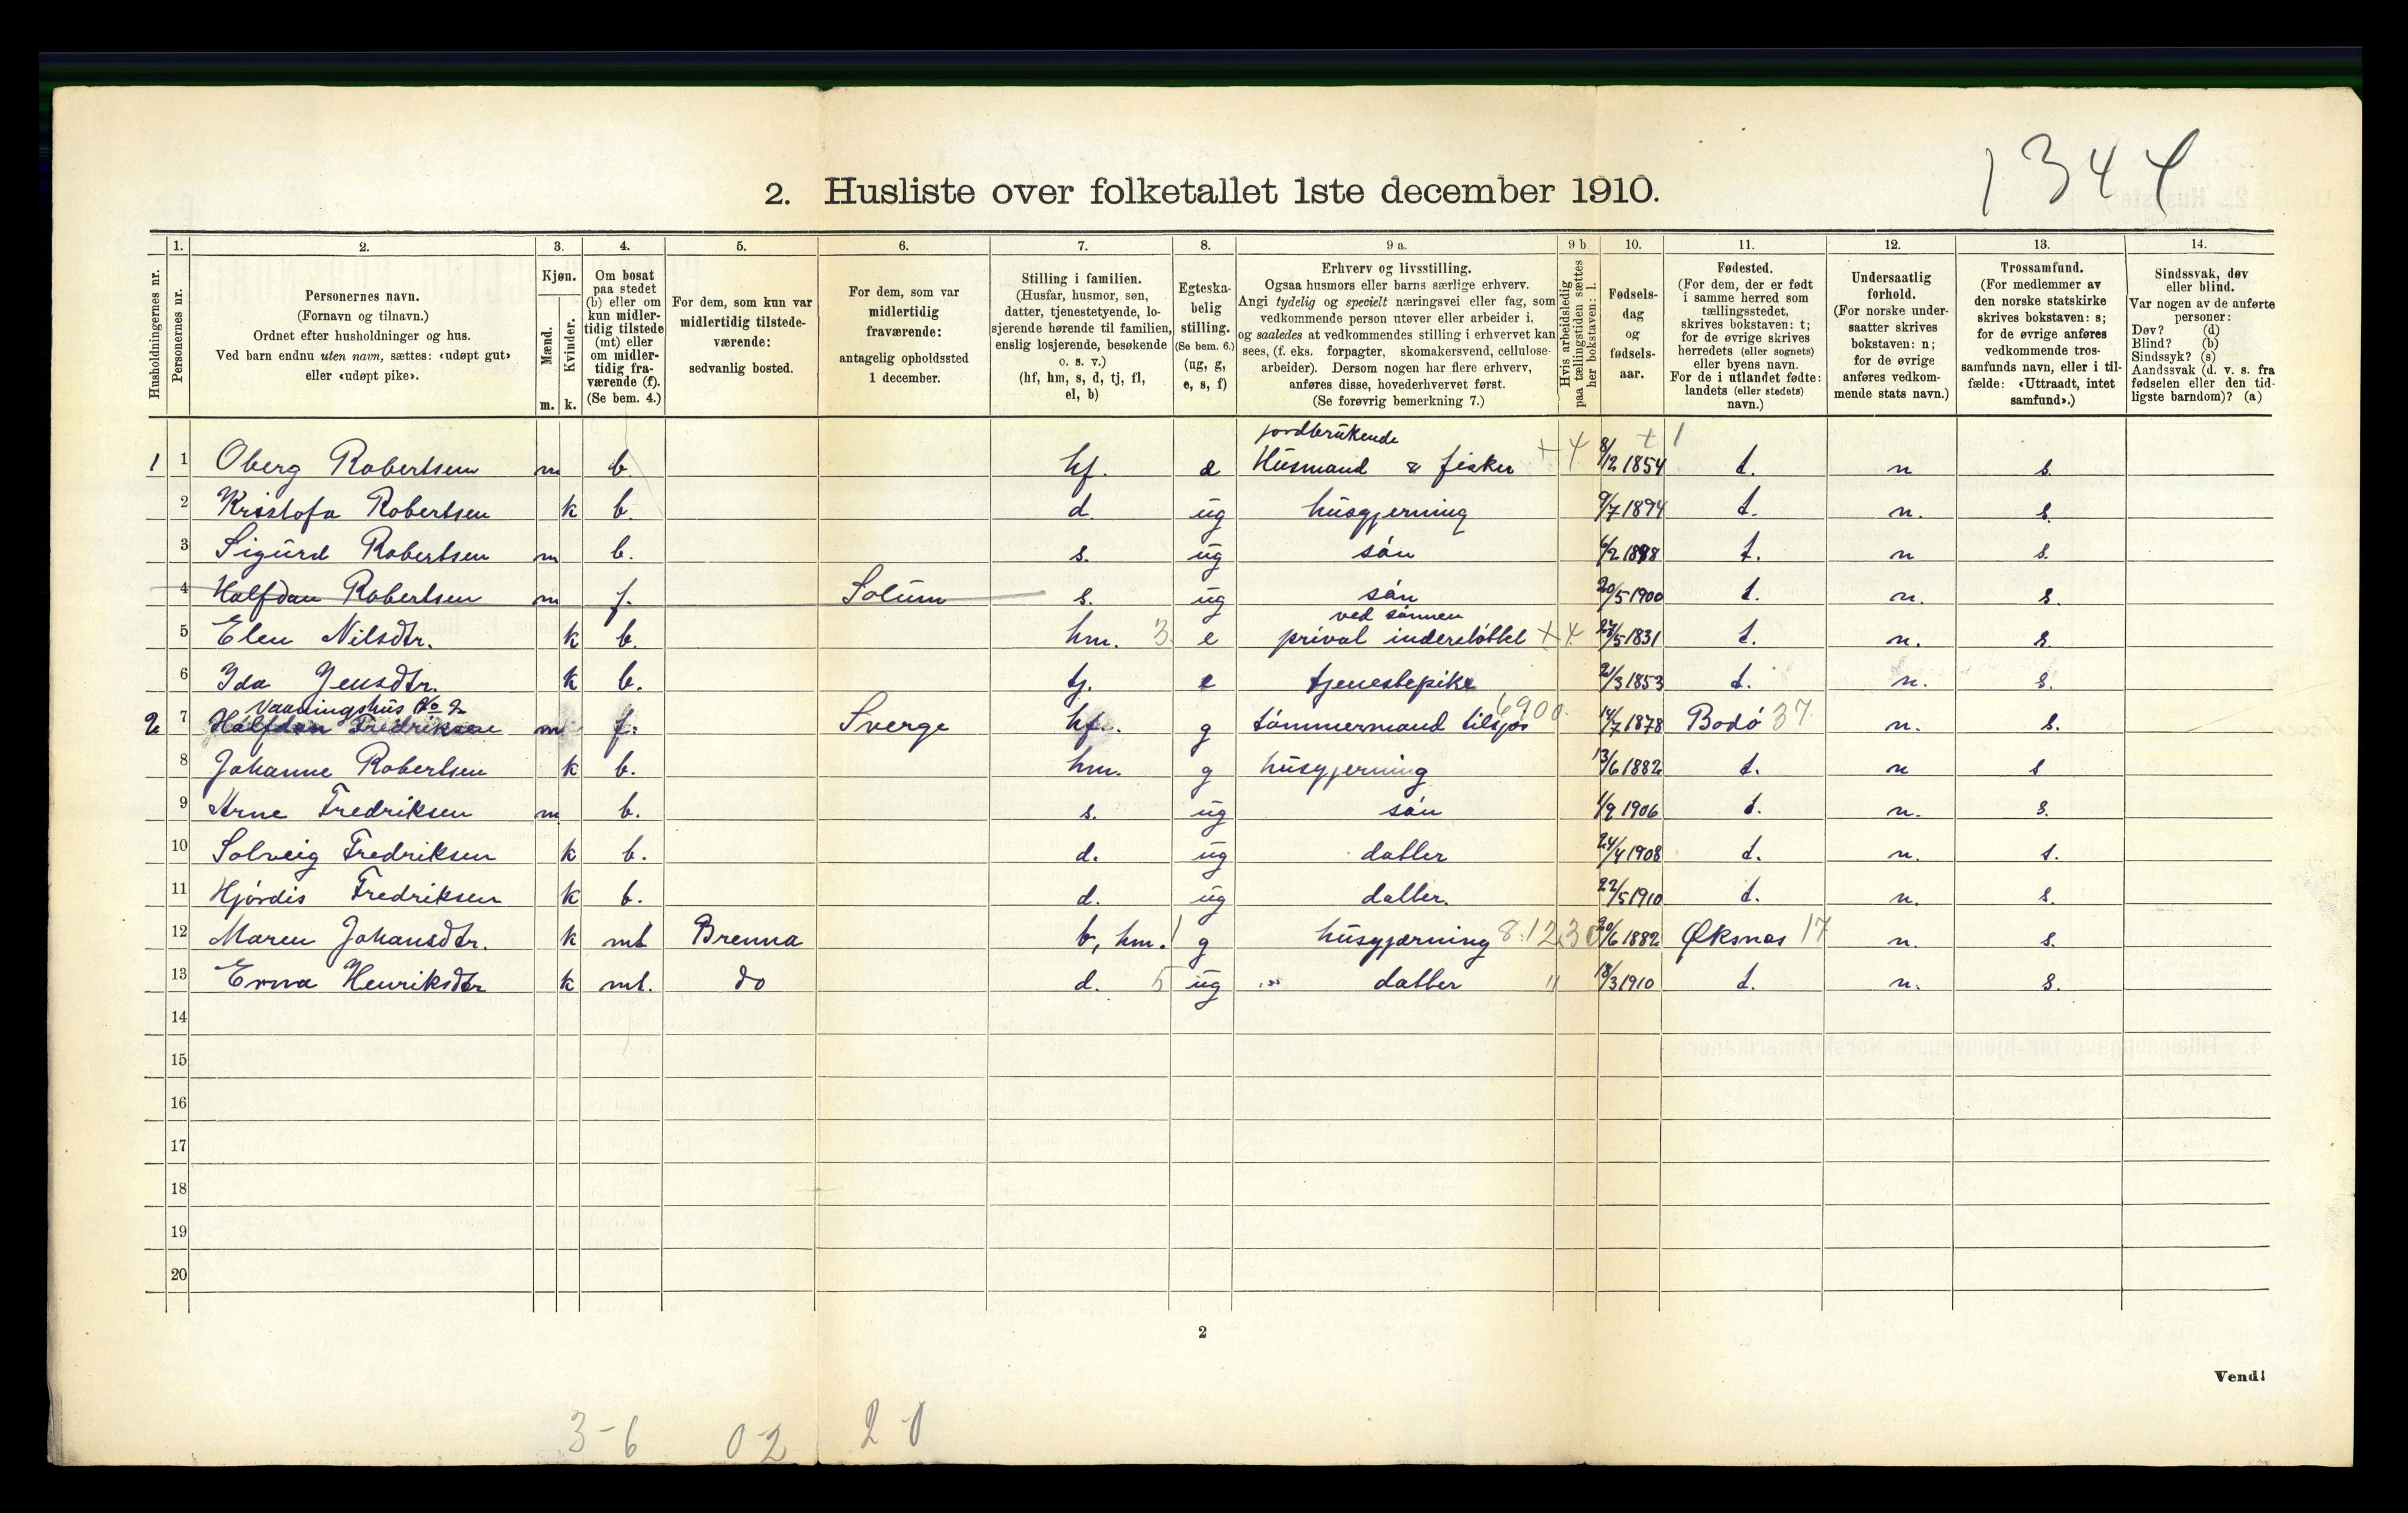 1344
2. Husliste over folketallet 1ste december 1910.
1. 2. 3. 4. 5. 6. 7. 8. 9 a. 9 b 10. 11. 12. 13. 14.
Husholdningernes nr.
Personernes nr.
Personernes navn.
(Fornavn og tilnavn.)
Ordnet efter husholdninger og hus.
Ved barn endnu uten navn, sættes: «udøpt gut»
eller «udøpt pike».
Kjøn.
Mænd.
Kvinder.
m. k.
Om bosat
paa stedet
(b) eller om
kun midler-
tidig tilstede
(mt) eller
om midler-
tidig fra-
værende (f).
(Se bem. 4.)
For dem, som kun var
midlertidig tilstede-
værende:
sedvanlig bosted.
For dem, som var
midlertidig
fraværende:
antagelig opholdssted
1 december.
Stilling i familien.
(Husfar, husmor, søn,
datter, tjenestetyende, lo-
sjerende hørende til familien,
enslig losjerende, besøkende
o. s. v.)
(hf, hm, s, d, tj, fl,
el, b)
Egteska-
belig
stilling.
(Se bem. 6.)
(ug, g,
e, s, f)
Erhverv og livsstilling.
Ogsaa husmors eller barns særlige erhverv.
Angi tydelig og specielt næringsvei eller fag, som
vedkommende person utøver eller arbeider i,
og saaledes at vedkommendes stilling i erhvervet kan
sees, (f. eks. forpagter, skomakersvend, cellulose-
arbeider). Dersom nogen har flere erhverv,
anføres disse, hovederhvervet først.
(Se forøvrig bemerkning 7.)
Hvis arbeidsledig
paa tællingstiden sættes
her bokstaven: l.
Fødsels-
dag
og
fødsels-
aar.
Fødested.
(For dem, der er født
i samme herred som
tællingsstedet,
skrives bokstaven: t;
for de øvrige skrives
herredets (eller sognets)
eller byens navn.
For de i utlandet fødte:
landets (eller stedets)
navn.)
Undersaatlig
forhold.
(For norske under-
saatter skrives
bokstaven: n;
for de øvrige
anføres vedkom-
mende stats navn.)
Trossamfund.
(For medlemmer av
den norske statskirke
skrives bokstaven: s;
for de øvrige anføres
vedkommende tros-
samfunds navn, eller i til-
fælde: «Uttraadt, intet
samfund».)
Sindssvak, døv
eller blind.
Var nogen av de anførte
personer:
Døv? (d)
Blind? (b)
Sindssyk? (s)
Aandssvak (d. v. s. fra
fødselen eller den tid-
ligste barndom)? (a)
jordbrukende
1 1 Oberg Robertsen m b. hf. e Husmand & fisker + 4 8/12 1854 t. n s.
2 Kristofa Robertsen k b. d. ug husgjerning 9/7 1894 t. n. s.
3 Sigurd Robertsen m b. s. ug sön 6/2 1898 t. n s.
4 Halfdan Robertsen m f. Solum s. ug sön 20/5 1900 t. n. s.
ved sönnen
5 Elen Nilsdtr. k b. hm. 3 e privat understöttet + 4 27/5 1831 t. n. s.
6 Ida Jensdtr. k b. tj. e tjenestepike 21/3 1853 t. n. s.
Vaaningshus No 2
2 7 Halfdan Fredriksen m f. Sverge hf. g tömmermand tilsjös 6900 14/7 1878 Bodö 37 n. s.
8 Johanne Robertsen k b. hm. g husgjerning 13/6 1882 t. n s
9 Arne Fredriksen m b. s. ug sön 1/9 1906 t. n. s.
10 Solveig Fredriksen k b. d. ug datter 24/4 1908 t. n. s.
11 Hjördis Fredriksen k b. d. ug datter. 22/5 1910 t. n. s.
12 Maren Johansdtr. k mt Brenna b, hm. 1 g husgjærning 8.12.30 20/6 1882 Øksnes 17 n. s.
13 Erna Henriksdtr k mt. do d. 5 ug datter " 18/3 1910 t. n. s.
14
15
16
17
18
19
20
2
Vend!
3-6 0-2 2-0